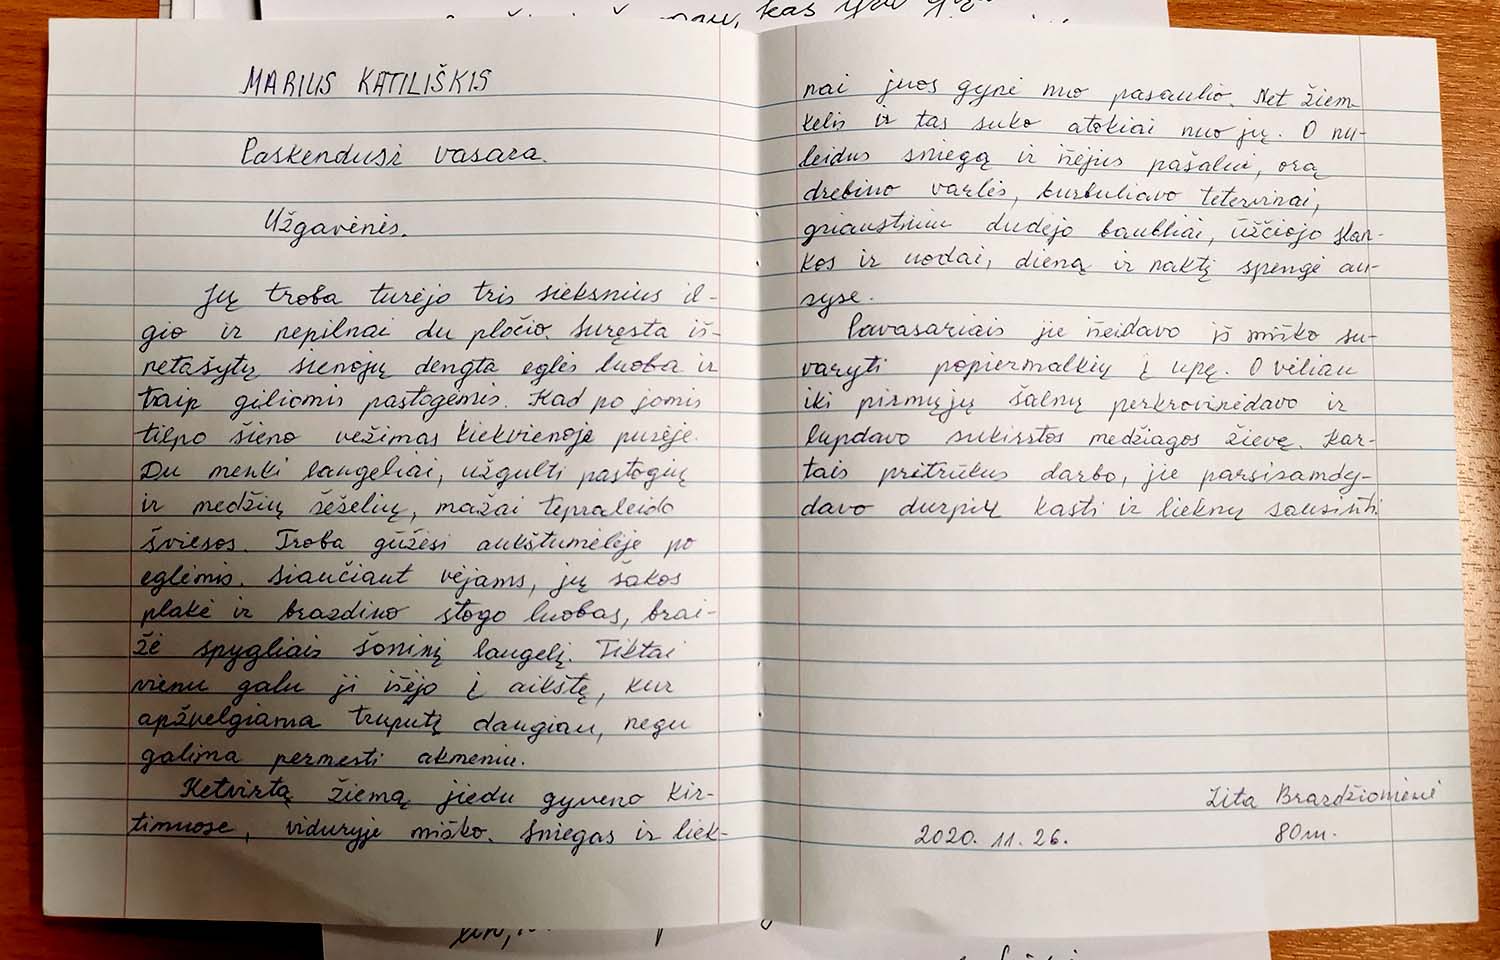 kas yra
MARIUS KATILIŠKIS
Paskendusi vasara.
Užgavėnės.
Jų troba turėjo tris sieksnius il-
gio ir nepilnai du pločio. Suręsta iš
netašytų sienojų dengta eglės luoba ir
taip giliomis pastogėmis. Kad po jomis
tilpo šieno vežimas kiekvienoje pusėje.
Du menki langeliai, užgulti pastogių
ir medžių šešėlių, mažai tepraleido
šviesos. Troba gūžėsi aukštumėlėje po
eglėmis. Siaučiant vėjams, jų šakos
plakė ir brazdino stogo luobas, brai-
žė spygliais šoninį langelį. Tiktai
vienu galu ji išėjo į aikštę, kur
apžvelgiama truputį daugiau, negu
galima permesti akmeniu.
Ketvirtą žiemą jiedu gyveno kir-
timuose, viduryje miško. Sniegas ir liek-
nai juos gynė nuo pasaulio. Net žiem-
kelis ir tas suko atokiai nuo jų. O nu-
leidus sniegą ir išėjus pašalui, orą
drebino varlės, burbuliavo tetervinai,
griaustiniu dudėjo baubliai, ūžčiojo slan-
kos ir uodai, dieną ir naktį spengė au-
syse.
Pavasariais jie išeidavo iš miško su-
varyti popiermalkių į upę. O vėliau
iki pirmųjų šalnų perkrovinėdavo ir
lupdavo sukirstos medžiagos žievę. Kar-
tais pritrūkus darbo, jie parsisamdy-
davo durpių kasti ir lieknų sausinti
Zita Brazdžionienė
2020. 11. 26. 80m.